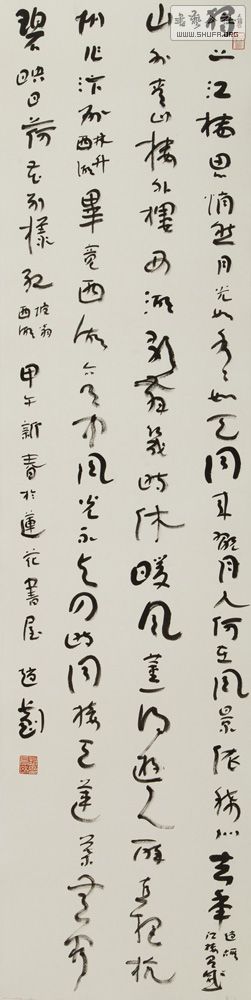 獨上江樓思悄然月光如水水如天同來翫月人何在風景依稀似去年 趙嘏江樓有感
山外青山樓外樓西湖歌舞幾時休暖風薰得遊人醉直把杭
州作汴州 林升西湖 畢竟西湖六月中風光不與四時同接天蓮葉無窮
碧映日荷花別樣紅 西湖 甲午新春於蓮花書屋
WWW.SHUFA.ORG